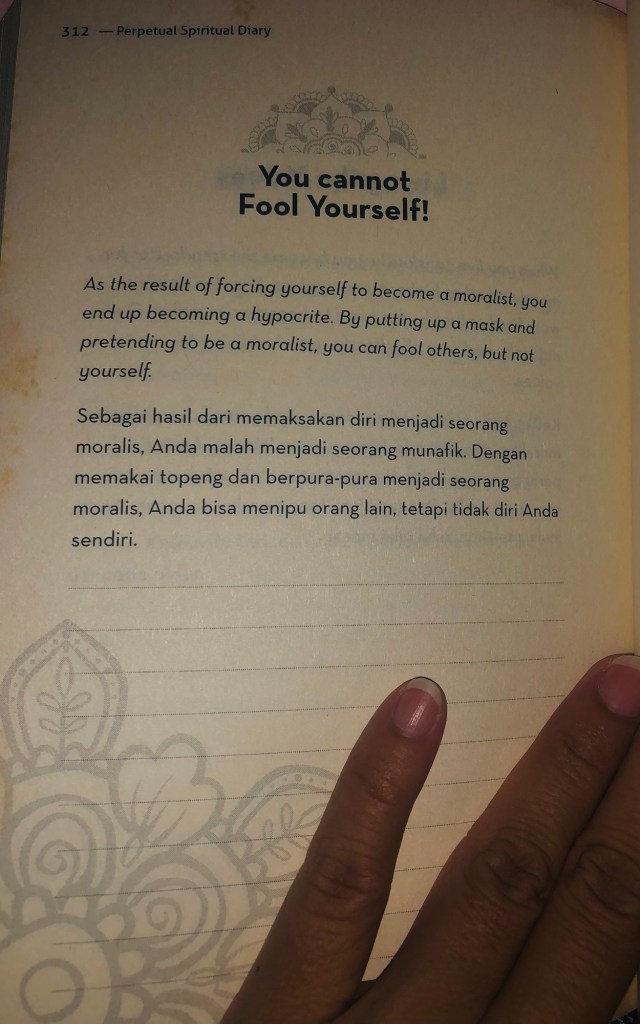 312 — Perpetual Spiritual Diary
You cannot
Fool Yourself!
As the result of forcing yourself to become a moralist, you
end up becoming a hypocrite. By putting up a mask and
pretending to be a moralist, you can fool others, but not
yourself.
Sebagai hasil dari memaksakan diri menjadi seorang
moralis, Anda malah menjadi seorang munafik. Dengan
memakai topeng dan berpura-pura menjadi seorang
moralis, Anda bisa menipu orang lain, tetapi tidak diri Anda
sendiri.